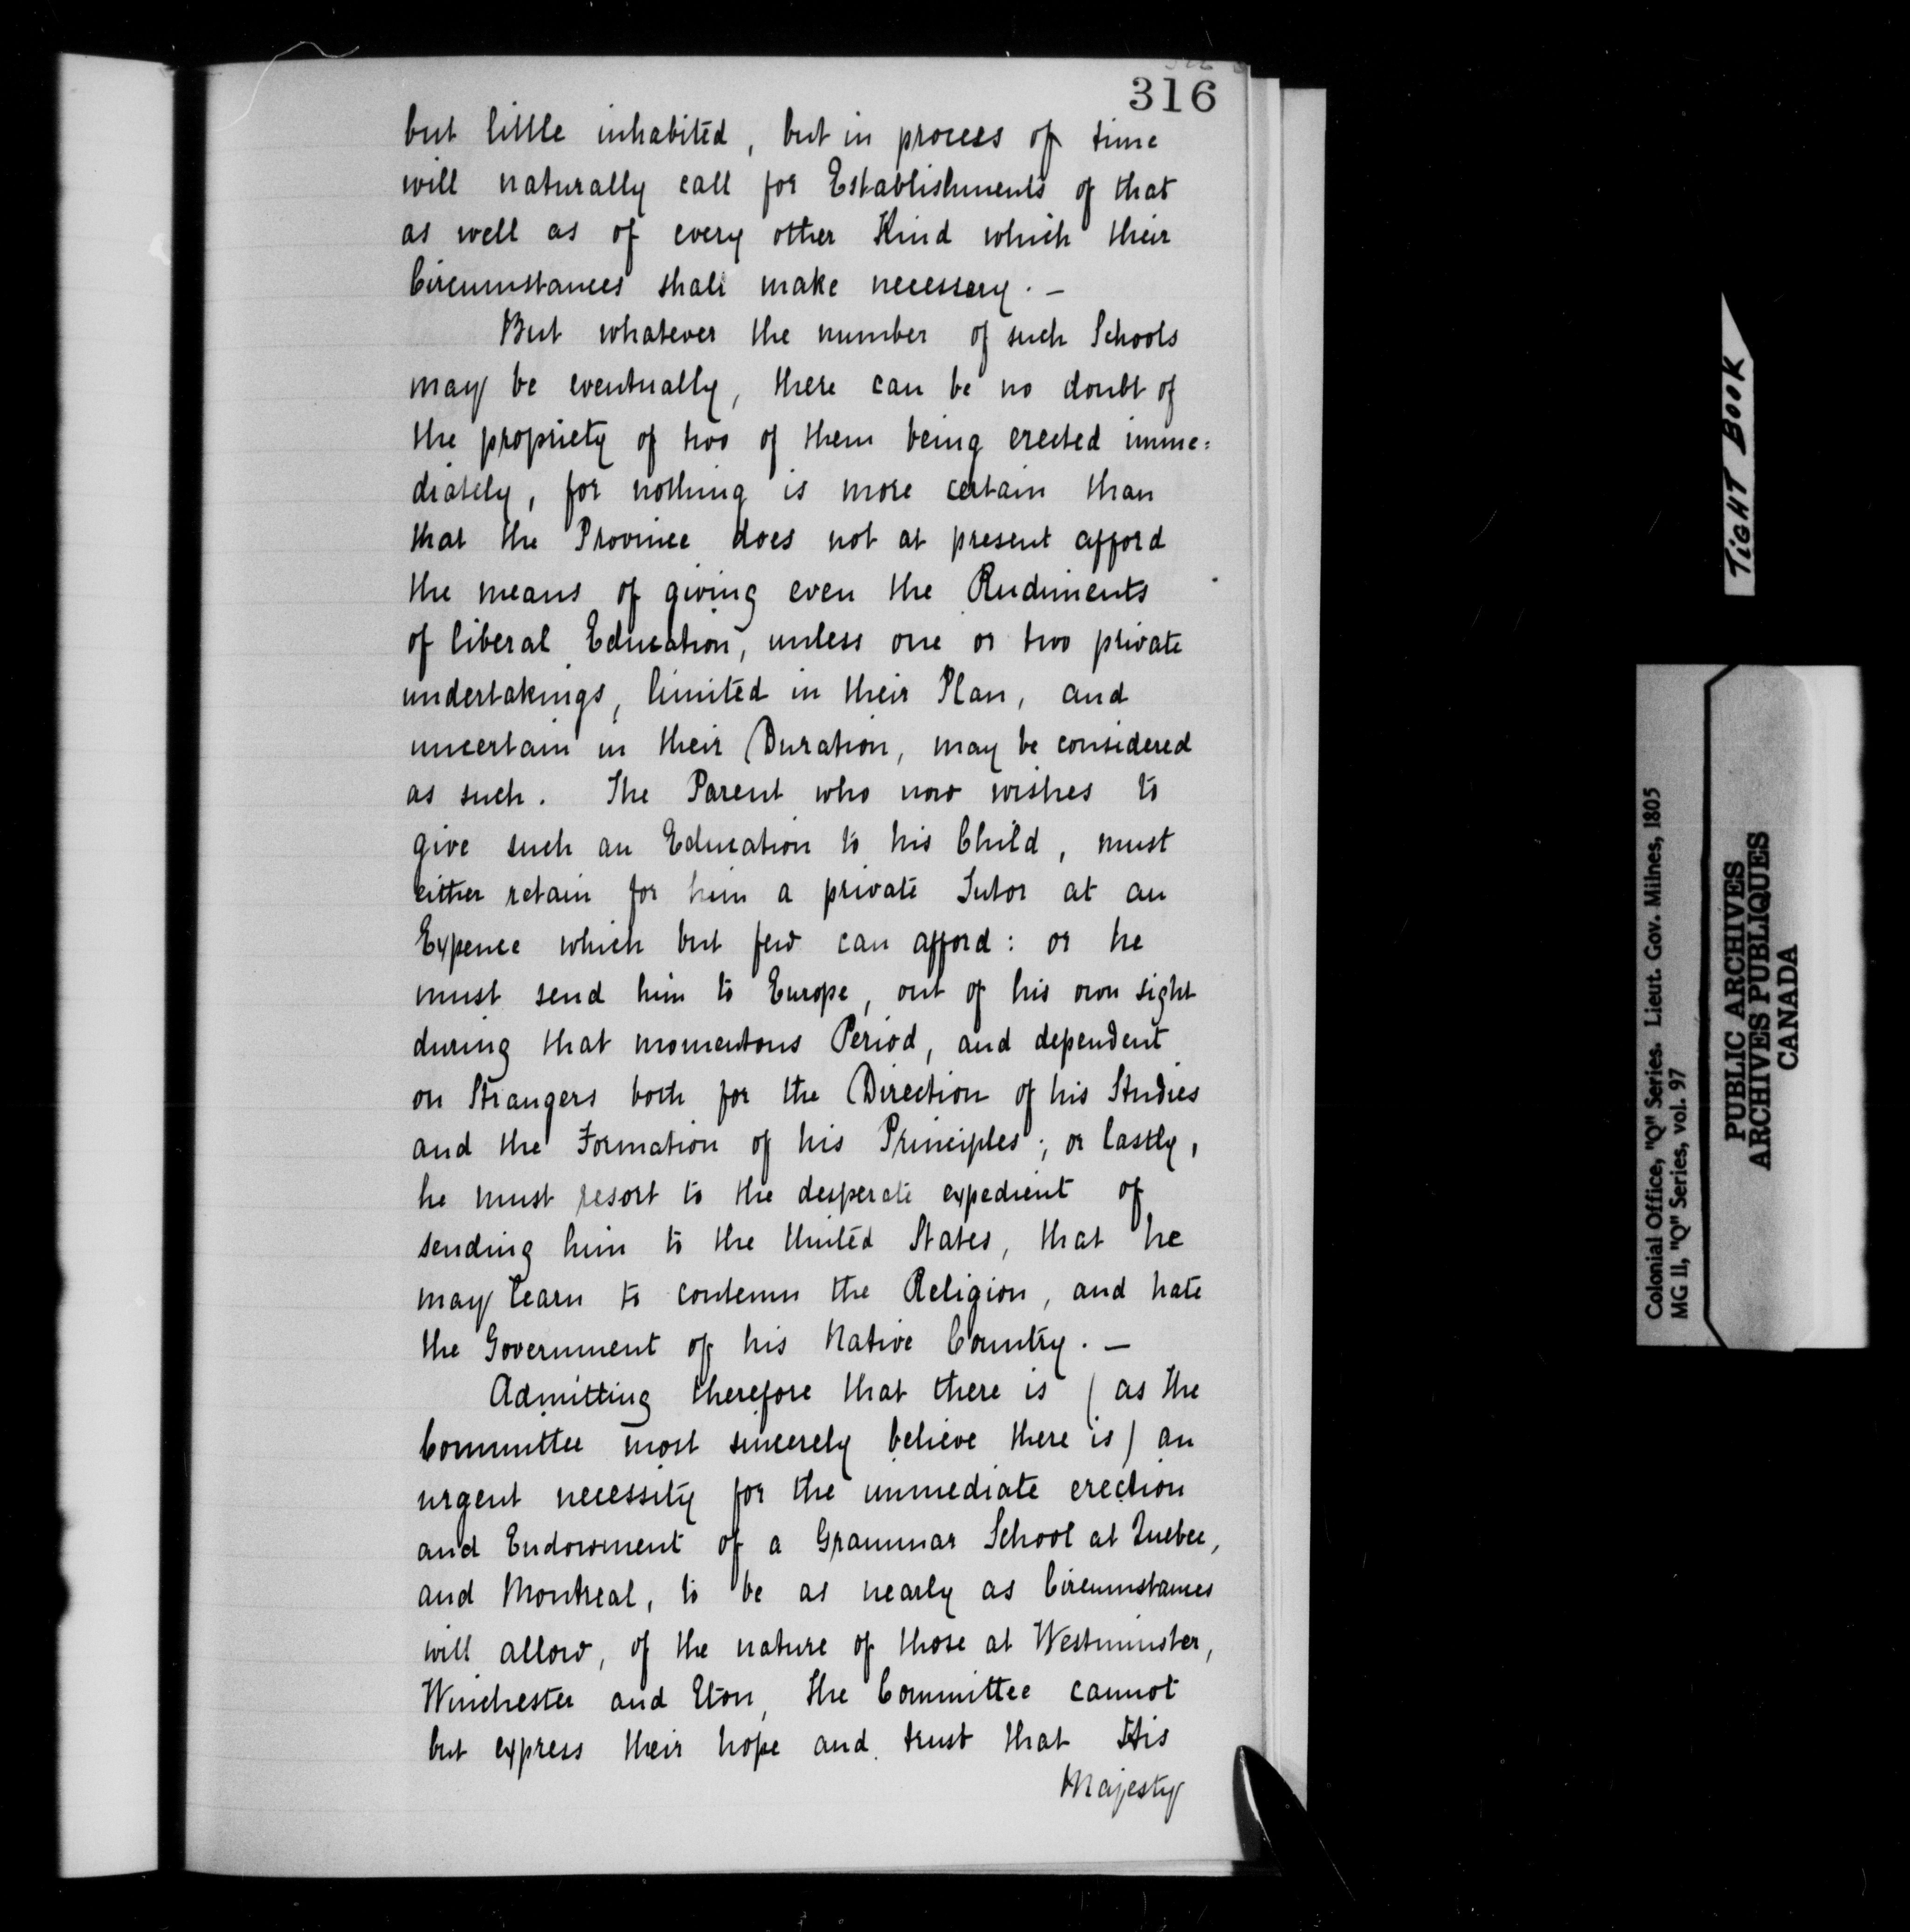 316
but little inhabited, but in process of time
will naturally call for Establishments of that
as well as of every other Kind which their
Circumstances shall make necessary. —
But whatever the number of such Schools
may be eventually, there can be no doubt of
the propriety of two of them being erected imme=
diately, for nothing is more certain than
that the Province does not at present afford
the means of giving even the Rudiments
of liberal Education, unless one or two private
undertakings, limited in their Plan, and
uncertain in their Duration, may be considered
as such. The Parent who now wishes to
give such an Education to his Child, must
either retain for him a private Tutor at an
Expence which but few can afford: or he
must send him to Europe, out of his own sight
during that momentous Period, and dependent
on Strangers both for the Direction of his Studies
and the Formation of his Principles; or lastly,
he must resort to the desperate expedient of
sending him to the United States, that he
may learn to contemn the Religion, and hate
the Government of his Native Country. —
Admitting therefore that there is (as the
Committee most sincerely believe there is) an
urgent necessity for the immediate erection
and Endowment of a Grammar School at Quebec,
and Montreal, to be as nearly as Circumstances
will allow, of the nature of those at Westminster,
Winchester and Eton, the Committee cannot
but express their hope and trust that His
Majesty
TIGHT BOOK
Colonial Office, "Q" Series. Lieut. Gov. Milnes, 1805
MG 11, "Q" Series, vol. 97
PUBLIC ARCHIVES
ARCHIVES PUBLIQUES
CANADA